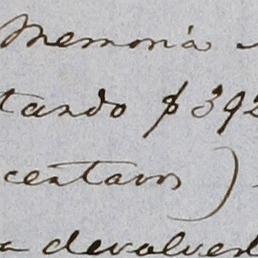 Memoria
tando $392
centavos)
a devolver